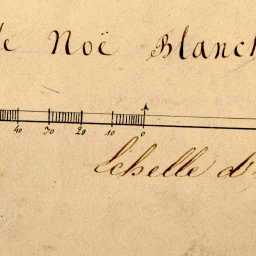 de Noë Blanch
40 30 20 10 0
Echelle d